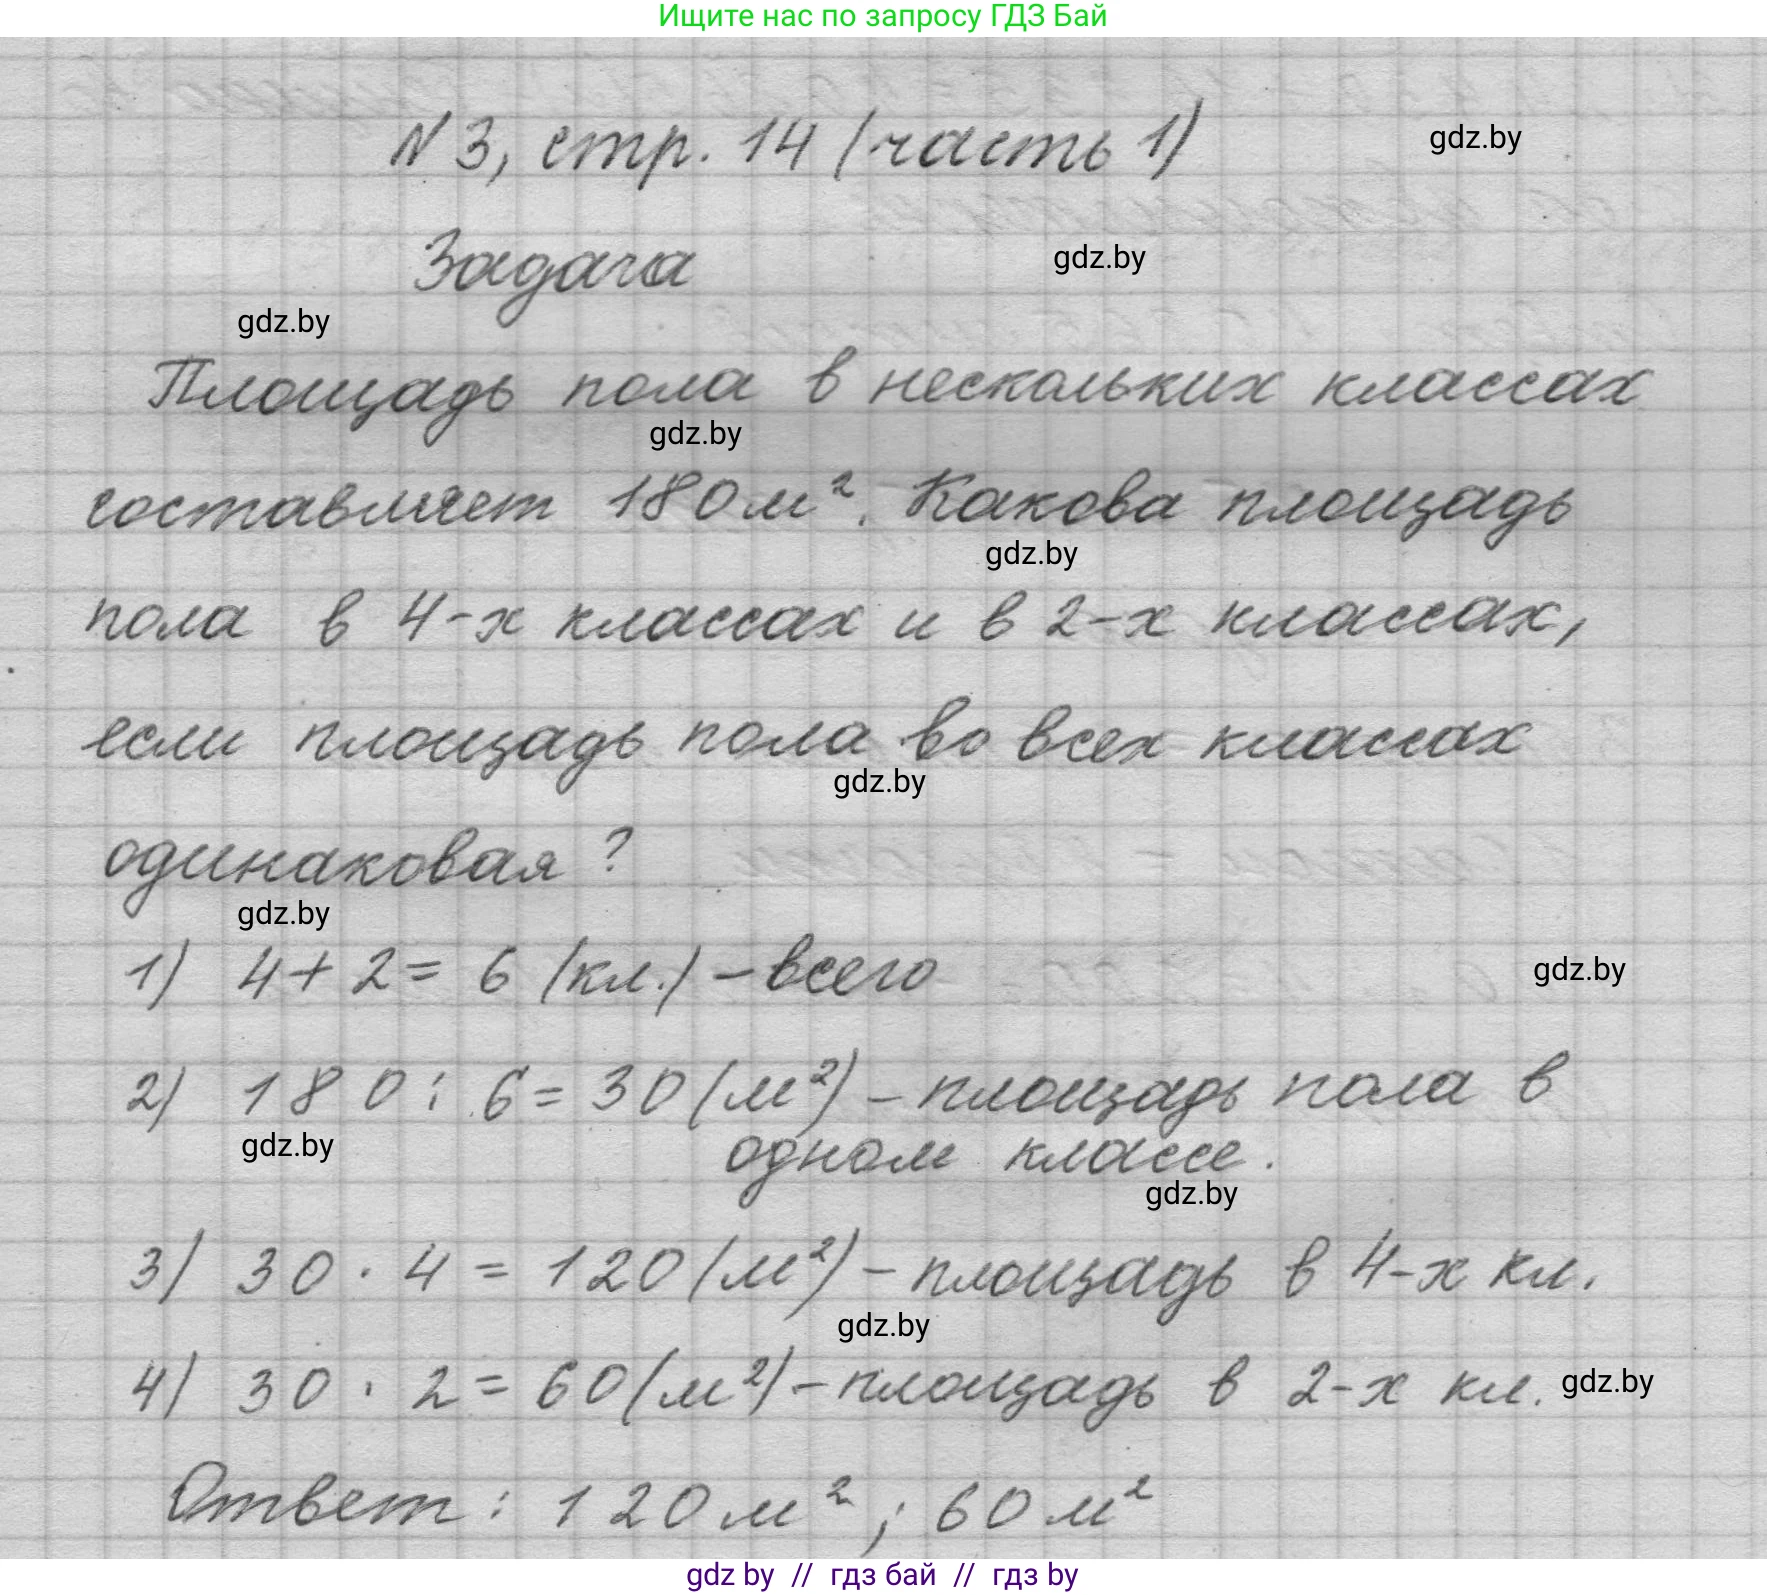 Ищите нас по запросу ГДЗ Бай
N 3, стр. 14 (часть 1)
gdz.by
Задача
gdz.by
gdz.by
Площадь пола в нескольких классах
gdz.by
составляет 180 м². Какова площадь
gdz.by
пола в 4-х классах и в 2-х классах,
если площадь пола во всех классах
gdz.by
одинаковая?
gdz.by
1) 4 + 2 = 6 (кл.) - всего
gdz.by
2) 180 : 6 = 30 (м²) - площадь пола в
gdz.by
одном классе.
gdz.by
3) 30 · 4 = 120 (м²) - площадь в 4-х кл.
gdz.by
4) 30 · 2 = 60 (м²) - площадь в 2-х кл.
gdz.by
Ответ: 120 м²; 60 м²
gdz by // гдз бай // гдз by